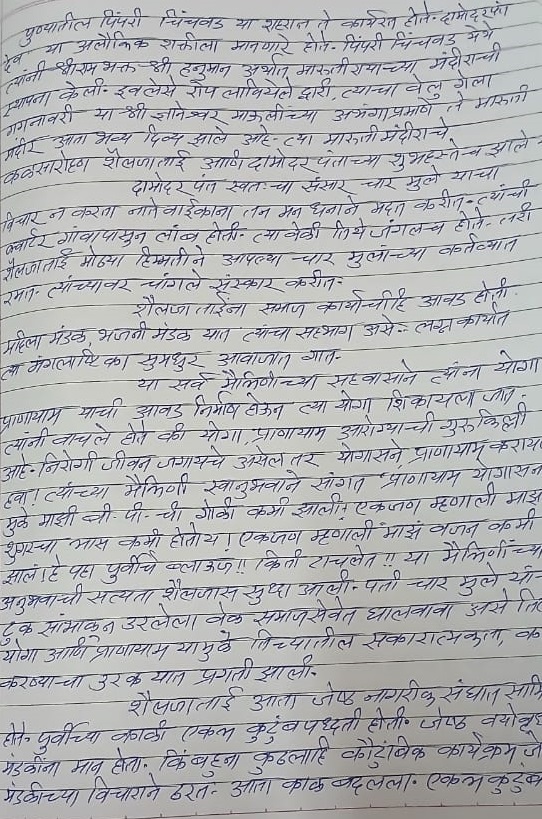 पुण्यातील पिंपरी चिंचवड या शहरात ते कार्यरत होते. दामोदरपंत
देव या अलौकिक शक्तीला मानणारे होते. पिंपरी चिंचवड येथे
त्यांनी श्रीराम भक्त श्री हनुमान अर्थात मारुतीरायाच्या मंदीराची
स्थापना केली. इवलेसे रोप लावियेले द्वारी, त्याचा वेलु गेला
गगनावरी या श्री ज्ञानेश्वर माऊलींच्या अभंगाप्रमाणे ते मारुती
मंदीर आता भव्य दिव्य झाले आहे. त्या मारुती मंदीराचे
कळसारोहण शैलजाताई आणि दामोदर पंताच्या शुभहस्तेच झाले.
दामोदर पंत स्वतःचा संसार चार मुले याचा
विचार न करता नातेवाईकांना तन मन धनाने मदत करीत. त्यांची
क्वार्टर गांवापासुन लांब होती. त्यावेळी तिथे जंगलच होते. तरी
शैलजाताई मोठ्या हिम्मतीने आपल्या चार मुलांच्या कर्तव्यात
रमत. त्यांच्यावर चांगले संस्कार करीत.
शैलजा ताईंना समाज कार्याचीहि आवड होती.
महिला मंडळ, भजनी मंडळ यात त्यांचा सहभाग असे. लग्नकार्यात
त्या मंगलाष्टिका सुमधुर आवाजात गात.
या सर्व मैत्रिणीच्या सहवासाने त्यांना योगा
प्राणायाम याची आवड निर्माण होऊन त्या योगा शिकायला जात.
त्यांनी वाचले होते की योगा, प्राणायाम आरोग्याची गुरुकिल्ली
आहे. निरोगी जीवन जगायचे असेल तर योगासने, प्राणायाम कराय
हवा! त्यांच्या मैत्रिणी स्वानुभवाने सांगत प्राणायाम योगासन
मुळे माझी बी. पी. ची गोळी कमी झाली! एकजण म्हणाली माझ
शुगरचा त्रास कमी होतोय! एकजण म्हणाली माझं वजन कमी
झालं! हे पहा पूर्वीचे ब्लाऊज!! किती टाचलेत!! या मैत्रिणींच्या
अनुभवाची सत्यता शैलजास सुद्धा आली. पती चार मुले यां
सांभाळून उरलेला वेळ समाजसेवेत घालवावा असे
योगा आणि प्राणायाम यामुळे तिच्यातील सकारात्मकता,
करण्याचा उरक यात प्रगती झाली.
शैलजाताई आता जेष्ठ नागरीक संघात सामि
होते. पुर्वीच्या काळी एकत्र कुटुंबपध्दती होती. जेष्ठ वयोवृध
मंडळींना मान होता. किंबहुना कुठलाहि कौटुंबिक कार्यक्रम जे
मंडळीच्या विचाराने ठरत. आता काळ बदलला. एकत्र कुटुंब